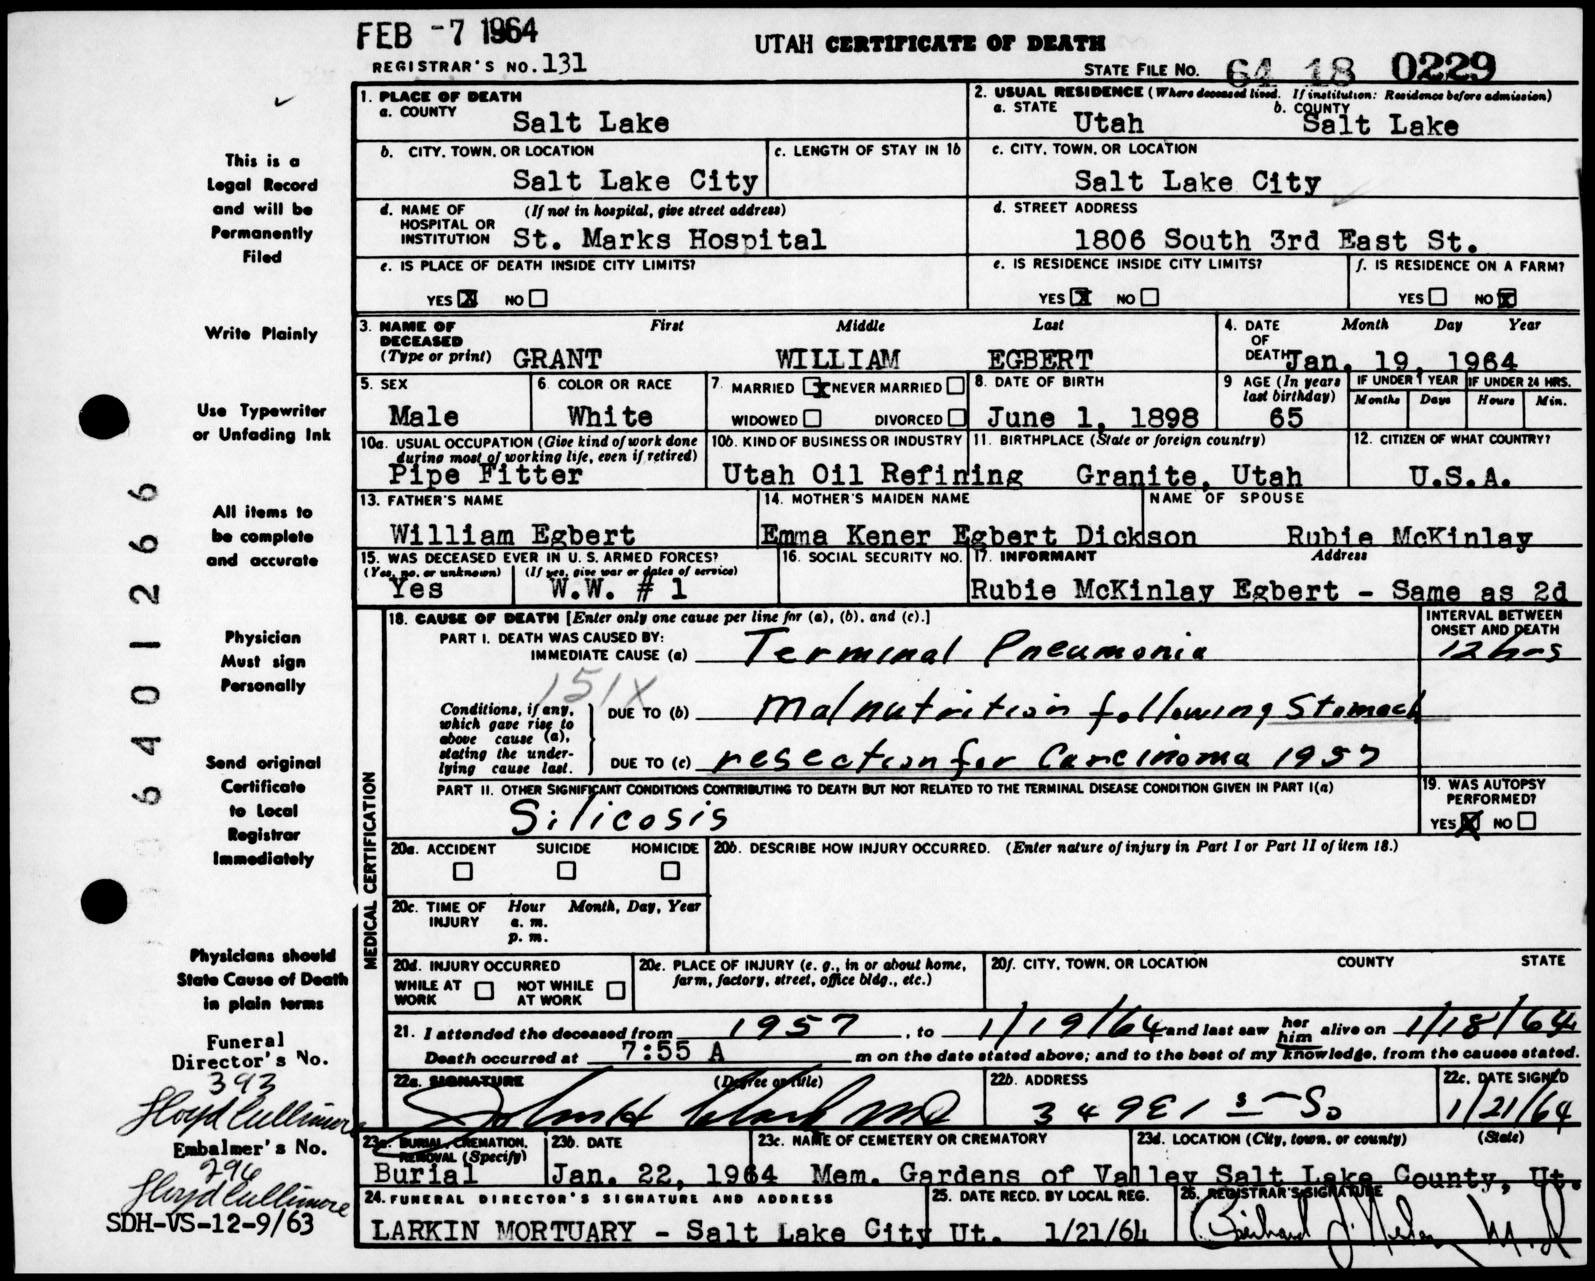 FEB -7 1964
REGISTRAR'S NO. 131
UTAH CERTIFICATE OF DEATH
STATE FILE NO. 64 18 0229
This is a
Legal Record
and will be
Permanently
Filed
Write Plainly
Use Typewriter
or Unfading Ink
All items to
be complete
and accurate
Physician
Must sign
Personally
Send original
Certificate
to Local
Registrar
Immediately
Physicians should
State Cause of Death
in plain terms
Funeral
Director's No.
393
Lloyd Cullimore
Embalmer's No.
296
Lloyd Cullimore
SDH-VS-12-9/63
6401266
1. PLACE OF DEATH
a. COUNTY
Salt Lake
2. USUAL RESIDENCE (Where deceased lived. If institution: Residence before admission)
a. STATE b. COUNTY
Utah Salt Lake
b. CITY, TOWN, OR LOCATION c. LENGTH OF STAY IN 1b
Salt Lake City
c. CITY, TOWN, OR LOCATION
Salt Lake City
d. NAME OF HOSPITAL OR INSTITUTION (If not in hospital, give street address)
St. Marks Hospital
d. STREET ADDRESS
1806 South 3rd East St.
e. IS PLACE OF DEATH INSIDE CITY LIMITS?
YES X NO
e. IS RESIDENCE INSIDE CITY LIMITS?
YES X NO
f. IS RESIDENCE ON A FARM?
YES NO X
3. NAME OF DECEASED (Type or print) First Middle Last
GRANT WILLIAM EGBERT
4. DATE OF DEATH Month Day Year
Jan. 19, 1964
5. SEX
Male
6. COLOR OR RACE
White
7. MARRIED X NEVER MARRIED
WIDOWED DIVORCED
8. DATE OF BIRTH
June 1, 1898
9 AGE (In years last birthday)
65
IF UNDER 1 YEAR IF UNDER 24 HRS.
Months Days Hours Min.
10a. USUAL OCCUPATION (Give kind of work done
during most of working life, even if retired)
Pipe Fitter
10b. KIND OF BUSINESS OR INDUSTRY
Utah Oil Refining
11. BIRTHPLACE (State or foreign country)
Granite, Utah
12. CITIZEN OF WHAT COUNTRY?
U.S.A.
13. FATHER'S NAME
William Egbert
14. MOTHER'S MAIDEN NAME
Emma Kener Egbert Dickson
NAME OF SPOUSE
Rubie McKinlay
15. WAS DECEASED EVER IN U. S. ARMED FORCES?
(Yes, no, or unknown) (If yes, give war or dates of service)
Yes W.W. # 1
16. SOCIAL SECURITY NO.
17. INFORMANT Address
Rubie McKinlay Egbert - Same as 2d
MEDICAL CERTIFICATION
18. CAUSE OF DEATH [Enter only one cause per line for (a), (b), and (c).]
INTERVAL BETWEEN
ONSET AND DEATH
PART I. DEATH WAS CAUSED BY:
IMMEDIATE CAUSE (a) Terminal Pneumonia 12 hrs
151X
Conditions, if any,
which gave rise to
above cause (a),
stating the under-
lying cause last.
DUE TO (b) Malnutrition following Stomach
DUE TO (c) resection for Carcinoma 1957
PART II. OTHER SIGNIFICANT CONDITIONS CONTRIBUTING TO DEATH BUT NOT RELATED TO THE TERMINAL DISEASE CONDITION GIVEN IN PART I(a)
Silicosis
19. WAS AUTOPSY
PERFORMED?
YES X NO
20a. ACCIDENT SUICIDE HOMICIDE
20b. DESCRIBE HOW INJURY OCCURRED. (Enter nature of injury in Part I or Part II of item 18.)
20c. TIME OF INJURY Hour Month, Day, Year
a. m.
p. m.
20d. INJURY OCCURRED
WHILE AT WORK NOT WHILE AT WORK
20e. PLACE OF INJURY (e. g., in or about home,
farm, factory, street, office bldg., etc.)
20f. CITY, TOWN, OR LOCATION COUNTY STATE
21. I attended the deceased from 1957, to 1/19/64 and last saw her him alive on 1/18/64
Death occurred at 7:55 A m on the date stated above; and to the best of my knowledge, from the causes stated.
22a. SIGNATURE (Degree or title)
John H Clark MD
22b. ADDRESS
349 E 1 s So
22c. DATE SIGNED
1/21/64
23a. BURIAL, CREMATION,
REMOVAL (Specify)
Burial
23b. DATE
Jan. 22, 1964
23c. NAME OF CEMETERY OR CREMATORY
Mem. Gardens of Valley
23d. LOCATION (City, town, or county) (State)
Salt Lake County, Ut.
24. FUNERAL DIRECTOR'S SIGNATURE AND ADDRESS
LARKIN MORTUARY - Salt Lake City Ut.
25. DATE RECD. BY LOCAL REG.
1/21/64
26. REGISTRAR'S SIGNATURE